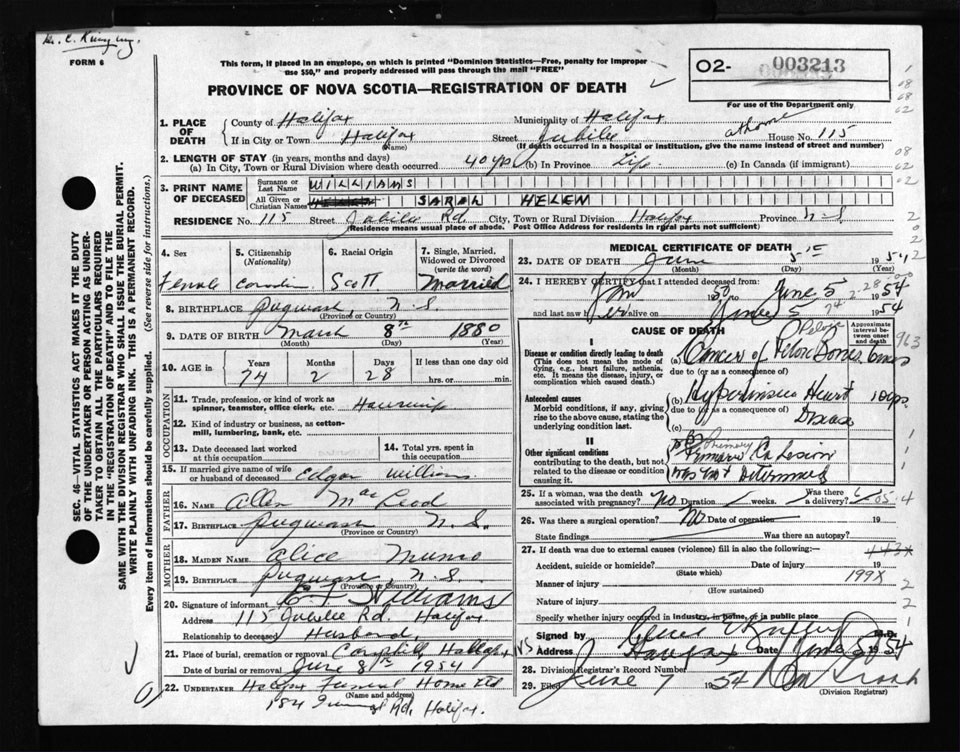 FORM 6
This form, if placed in an envelope, on which is printed "Dominion Statistics—Free, penalty for improper
use $50," and properly addressed will pass through the mail "FREE"
O2- 003213
For use of the Department only
PROVINCE OF NOVA SCOTIA—REGISTRATION OF DEATH
1. PLACE OF DEATH
County of Halifax Municipality of Halifax
If in City or Town Halifax Street Jubilee at home House No. 115
(Name) (If death occurred in a hospital or institution, give the name instead of street and number)
2. LENGTH OF STAY (in years, months and days)
(a) In City, Town or Rural Division where death occurred 40 yrs (b) In Province Life (c) In Canada (if immigrant)
3. PRINT NAME OF DECEASED
Surname or Last Name WILLIAMS
All Given or Christian Names SARAH HELEN
RESIDENCE No. 115 Street Jubilee Rd. City, Town or Rural Division Halifax Province N.S.
(Residence means usual place of abode. Post Office Address for residents in rural parts not sufficient)
4. Sex
Female
5. Citizenship (Nationality)
Canadian
6. Racial Origin
Scott.
7. Single, Married, Widowed or Divorced (write the word)
Married
8. BIRTHPLACE Pugwash, N.S.
(Province or Country)
9. DATE OF BIRTH March 8th 1880
(Month) (Day) (Year)
10. AGE in Years Months Days If less than one day old
74 2 28 hrs. or min.
OCCUPATION
11. Trade, profession, or kind of work as
spinner, teamster, office clerk, etc. Housewife
12. Kind of industry or business, as cotton-
mill, lumbering, bank, etc.
13. Date deceased last worked
at this occupation
14. Total yrs. spent in
this occupation
15. If married give name of wife
or husband of deceased Edgar Williams
FATHER
16. NAME Allen MacLeod
17. BIRTHPLACE Pugwash N.S.
(Province or Country)
MOTHER
18. MAIDEN NAME Alice Munro
19. BIRTHPLACE Pugwash, N.S.
(Province or Country)
20. Signature of informant Williams
Address 115 Jubilee Rd. Halifax
Relationship to deceased Husband.
21. Place of burial, cremation or removal Camphill Halifax
Date of burial or removal June 8th 1954
22. UNDERTAKER Halifax Funeral Home Ltd
(Name and address)
Rd, Halifax.
MEDICAL CERTIFICATE OF DEATH
23. DATE OF DEATH June 5th 1954
(Month) (Day) (Year)
24. I HEREBY CERTIFY that I attended deceased from:
Jan 1950 to June 5 1954
and last saw her alive on June 5 1954
CAUSE OF DEATH
Approximate interval between onset and death
I
Disease or condition directly leading to death
(This does not mean the mode of
dying, e.g., heart failure, asthenia,
etc. It means the disease, injury, or
complication which caused death.)
(a) Cancer of Pelvic Bones 6 mos
due to (or as a consequence of)
Antecedent causes
Morbid conditions, if any, giving
rise to the above cause, stating the
underlying condition last.
(b) Hypertensive Heart 10 yrs.
due to (or as a consequence of)
Disease
II
Other significant conditions
contributing to the death, but not
related to the disease or condition
causing it.
Primary Ca Lesion
Was not Determined
25. If a woman, was the death
associated with pregnancy? No Duration weeks. Was there a delivery?
26. Was there a surgical operation? No Date of operation 19
State findings Was there an autopsy?
27. If death was due to external causes (violence) fill in also the following:—
Accident, suicide or homicide? Date of injury 19
(State which)
199X
Manner of injury
(How sustained)
Nature of injury
Specify whether injury occurred in industry, in home, or in public place
Signed by M.D.
Address Halifax Date June 5 1954
28. Division Registrar's Record Number
29. Filed June 7 1954
(Division Registrar)
SEC. 46—VITAL STATISTICS ACT MAKES IT THE DUTY
OF THE UNDERTAKER OR PERSON ACTING AS UNDER-
TAKER TO OBTAIN ALL THE PARTICULARS REQUIRED
IN THE "REGISTRATION OF DEATH" AND TO FILE THE
SAME WITH THE DIVISION REGISTRAR WHO SHALL ISSUE THE BURIAL PERMIT.
WRITE PLAINLY WITH UNFADING INK. THIS IS A PERMANENT RECORD.
Every item of information should be carefully supplied. (See reverse side for instructions.)